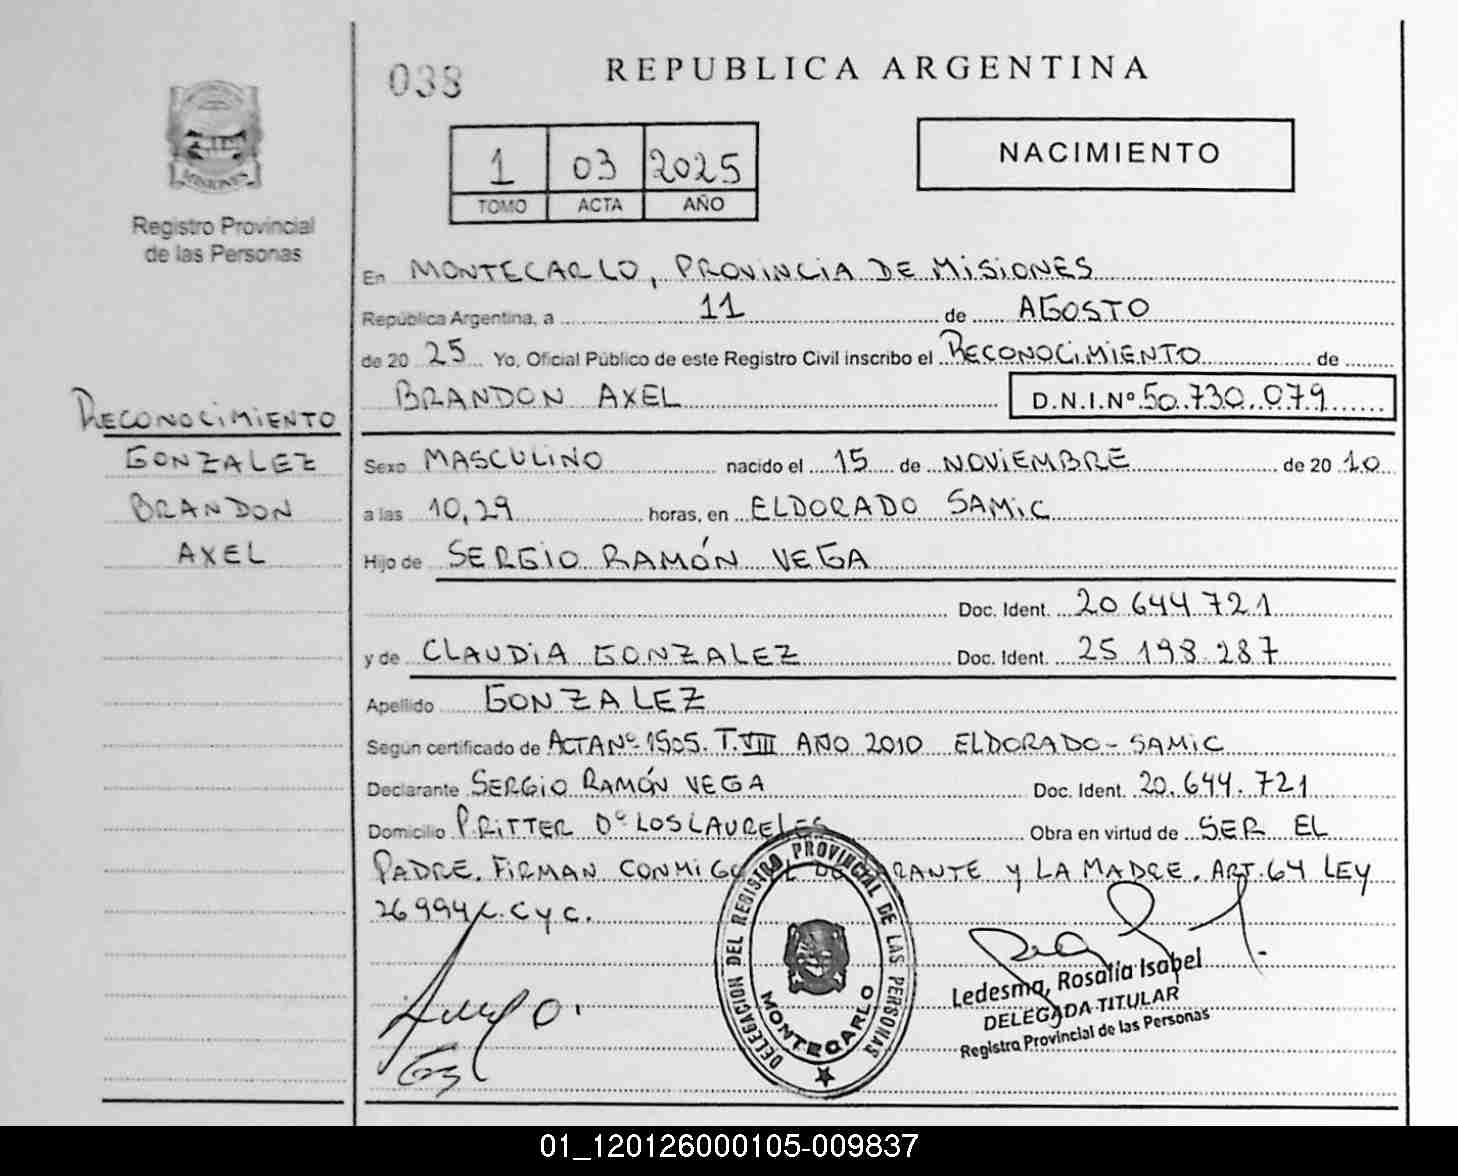 038
REPUBLICA ARGENTINA
1 03 2025
TOMO ACTA AÑO
NACIMIENTO
MISIONES
Registro Provincial
de las Personas
En MONTECARLO, PROVINCIA DE MISIONES
República Argentina, a 11 de AGOSTO
de 20 25 Yo, Oficial Público de este Registro Civil inscribo el RECONOCIMIENTO de
BRANDON AXEL D.N.I.Nº 50.730.079
RECONOCIMIENTO
GONZALEZ
BRANDON
AXEL
Sexo MASCULINO nacido el 15 de NOVIEMBRE de 20 10
a las 10,29 horas, en ELDORADO SAMIC
Hijo de SERGIO RAMÓN VEGA
Doc. Ident. 20 644 721
y de CLAUDIA GONZALEZ Doc. Ident. 25 198 287
Apellido GONZALEZ
Según certificado de ACTA Nº 1505. T. VIII AÑO 2010 ELDORADO - SAMIC
Declarante SERGIO RAMÓN VEGA Doc. Ident. 20.644.721
Domicilio P. RITTER Dº LOS LAURELES Obra en virtud de SER EL
PADRE. FIRMAN CONMIGO Y LA MADRE. ART. 64 LEY
26994 C. C y C.
DELEGACION DEL REGISTRO PROVINCIAL DE LAS PERSONAS
MONTECARLO
Ledesma, Rosalía Isabel
DELEGADA TITULAR
Registro Provincial de las Personas
01_120126000105-009837